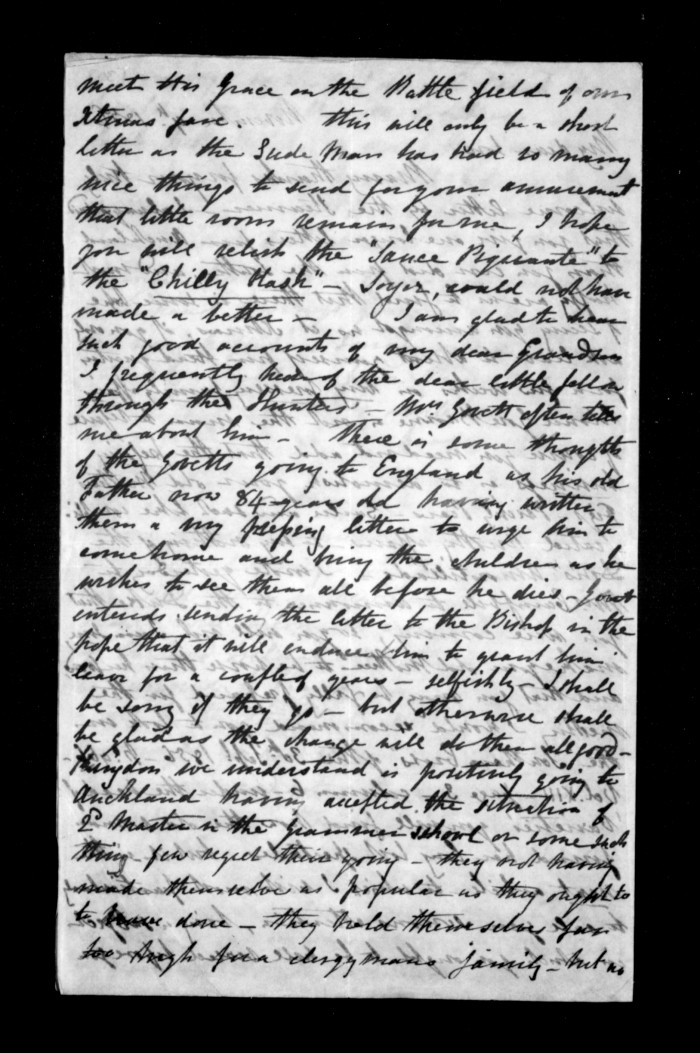 meet His Grace on the Battle field of our
Xtmas fare. This will only be a short
letter as the Gude Man has had so many
nice things to send for your amusement
that little room remains for me, I hope
you will relish the "Sauce Piquante" to
the "Chilly Hash" - Soyer, could not have
made a better - I am glad to hear
such good accounts of my dear Grandson
I frequently hear of the dear little fellow
through the Hunters - Mrs Govett often tells
me about him - there is some thoughts
of the Govetts going to England as his old
Father now 84 years old having written
them a my letter to urge him to
come home and bring the children as he
wishes to see them all before he dies - Govett
intends sending the letter to the Bishop in the
hope that it will enduce him to grant him
leave for a couple of years - selfishly I shall
be sorry if they go - but otherwise shall
be glad as the change will do them all good -
we understand is positively going to
Auckland having accepted the situation of
2d Master in the grammer school or some such
thing - few regret their going - they not having
made themselve as popular as they ought to
to have done - they held themselves far
too high for a clergymans family - but no